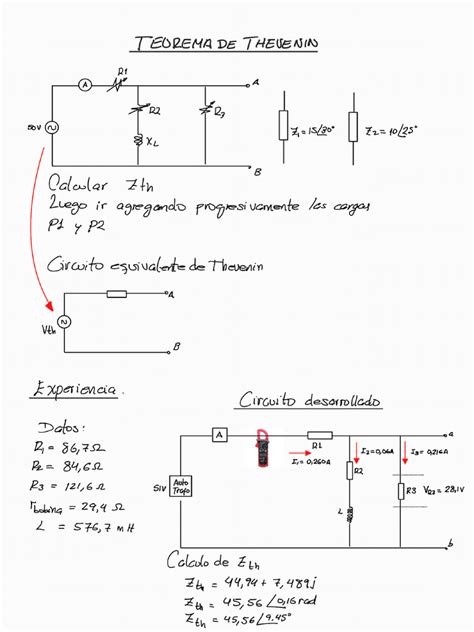 TEOREMA DE THEVENIN
A
R1
A
R2
R3
50V
XL
B
Z1=15/30°
Z2=10/25°
Calcular Zth
Luego ir agregando progresivamente las cargas
P1 y P2
Circuito equivalente de Thevenin
A
Vth
B
Experiencia.
Circuito desarrollado
Datos:
R1 = 86,7Ω
R2 = 84,6Ω
R3 = 121,6Ω
rbobina = 29,4Ω
L = 576,7 mH
A
R1
a
I1=0,260A
I2=0,06A
I3=0,216A
R2
51V
Auto
Trafo
R3
VR3=28,1V
L
b
Calculo de Zth
Zth = 44,94 + 7,489j
Zth = 45,56 /0,16 rad
Zth = 45,56 /9.45°